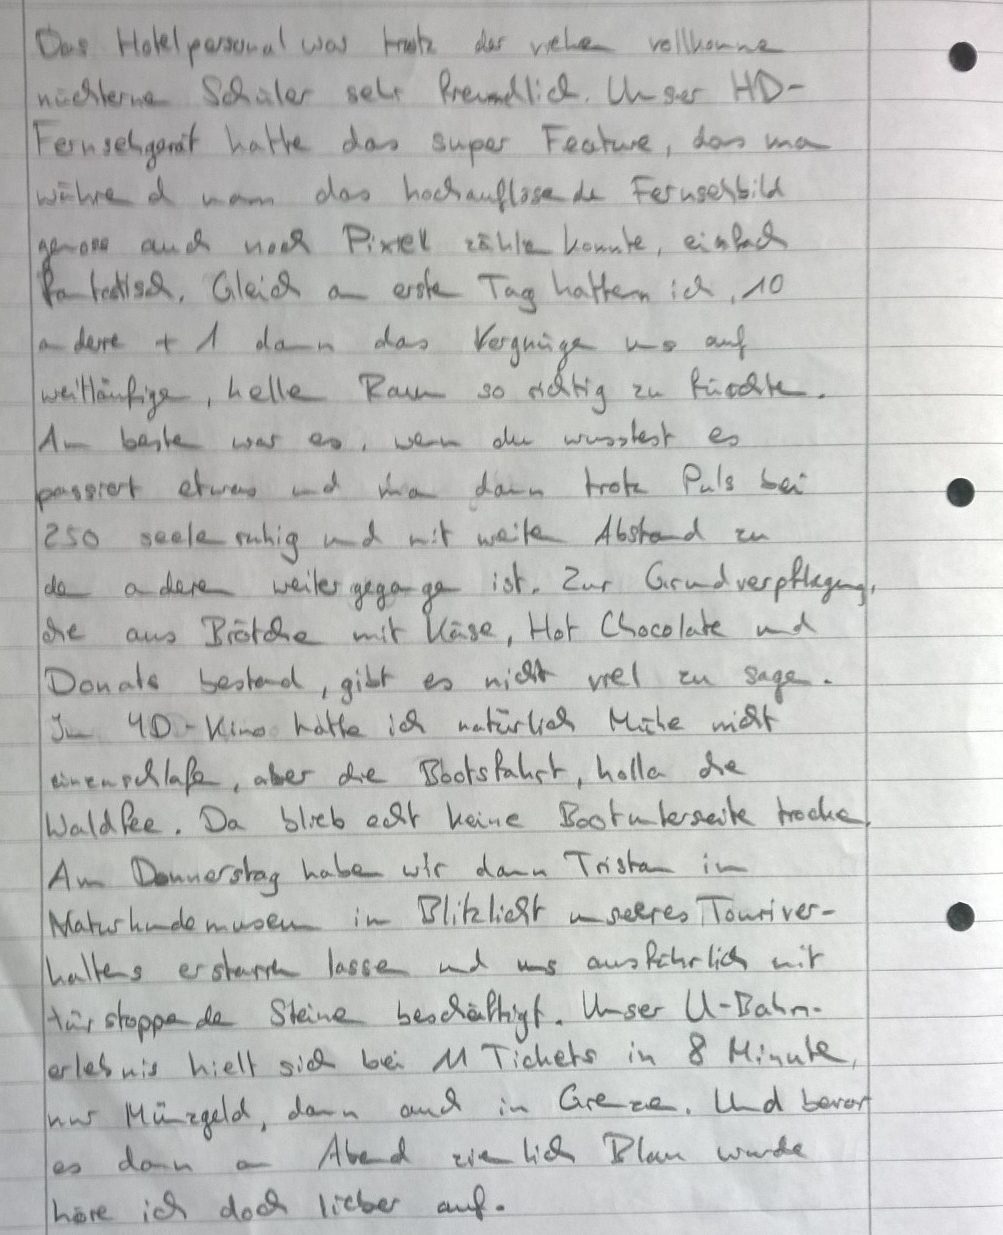 Das Hotelpersonal war trotz der vielen vollkommen
nüchternen Schüler sehr freundlich. Unser HD-
Fernsehgerät hatte das super Feature, das man
während man das hochauflösende Fernsehbild
genoss auch noch Pixtel zählen konnte, einfach
fantastisch. Gleich am ersten Tag hatten ich, 10
andere + 1 dann das Vergnügen uns auf
weitläufigen, hellen Raum so richtig zu fürchten.
Am besten war es, wenn du wusstest es
passiert etwas und man dann trotz Puls bei
250 seelenruhig und mit weiten Abstand zu
den anderen weitergegangen ist. Zur Grundverpflegung,
die aus Brötchen mit Käse, Hot Chocolate und
Donats bestand, gibt es nicht viel zu sagen.
Im 4D-Kino hatte ich natürlich Mühe nicht
einzuschlafen, aber die Bootsfahrt, holla die
Waldfee. Da blieb echt keine Bootunterseite trocken.
Am Donnerstag haben wir dann Tristan im
Naturkundemuseum im Blitzlicht unseres Touriver-
haltens erstarren lassen und uns ausführlich mit
türstoppenden Steinen beschäftigt. Unser U-Bahn-
erlebnis hielt sich bei 11 Tickets in 8 Minuten,
nur Münzgeld, dann auch in Grenzen. Und bevor
es dann am Abend ziemlich Blau wurde
höre ich doch lieber auf.